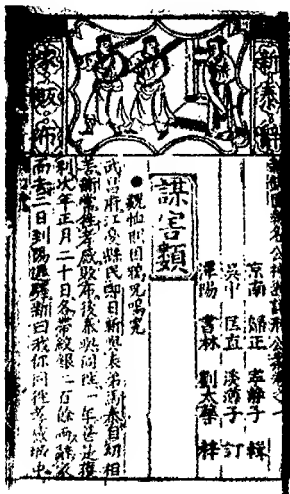 新泰辭
家販布
名公神斷詳刑公案卷之一
京南 歸正 寧靜子 輯
吳中 匡直 淡薄子 訂
潭陽 書林 劉太華 梓
謀害類
●魏恤刑因鳴冤
武昌府江夏縣民鄭日新與表弟馬泰自幼相
善新常往孝感販布後泰與同往一年甚是獲
利次年正月二十日各帶紋銀二百餘兩辭家
而去三日到陽邏驛新曰我你同往孝感城中